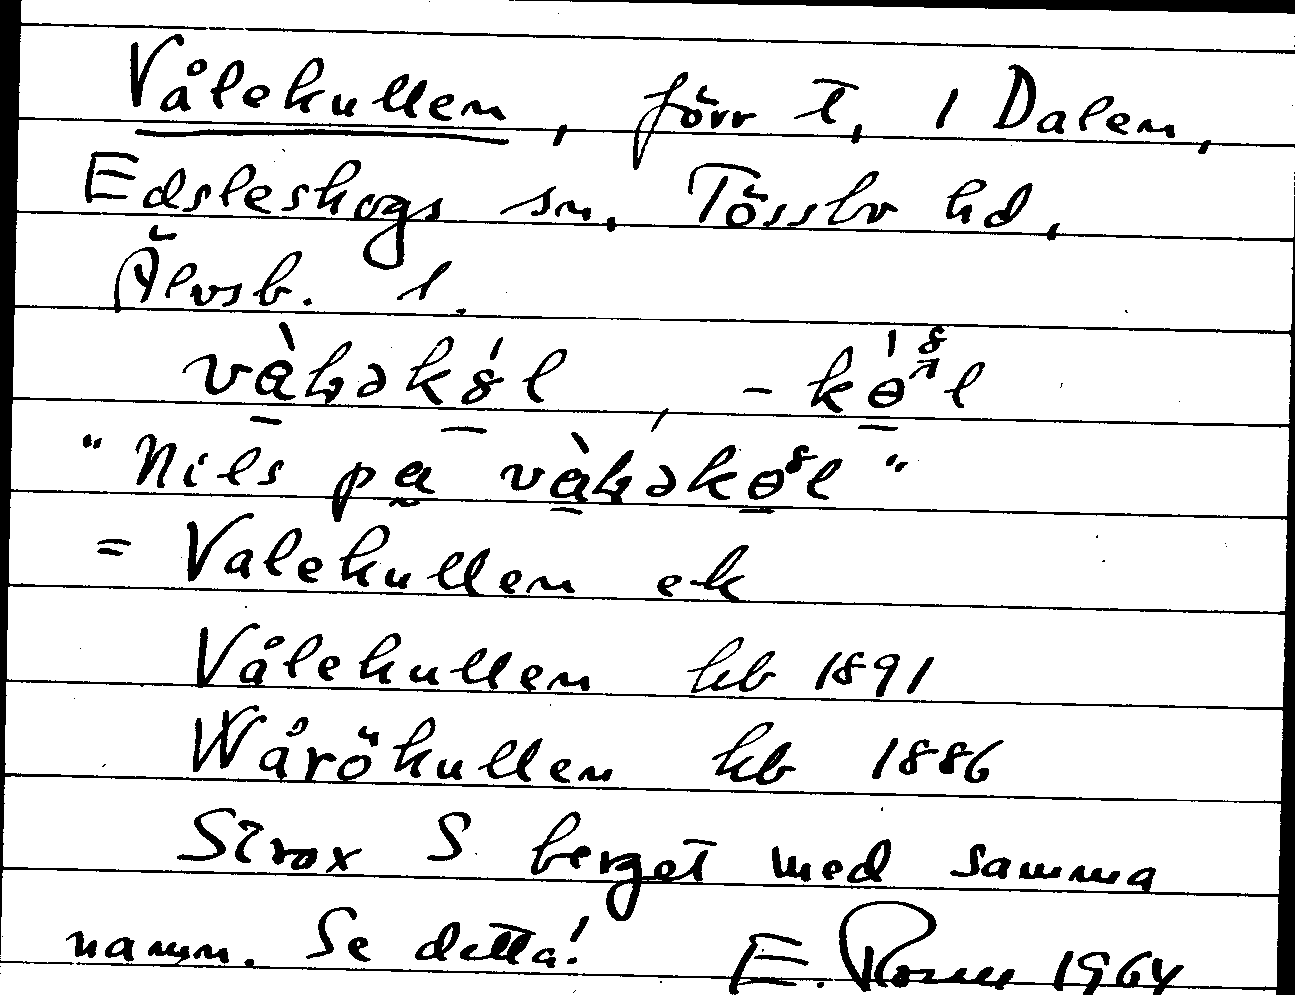 Vålekullen, förr t, i Dalen,
Edsleskogs sn, Tössbo hd,
Älvsb. l.
"Nils på
= Valekullen ek
Vålekullen kb 1891
Wårökullen kb 1886
Strax S berget med samma
namn. Se detta! E. 1964